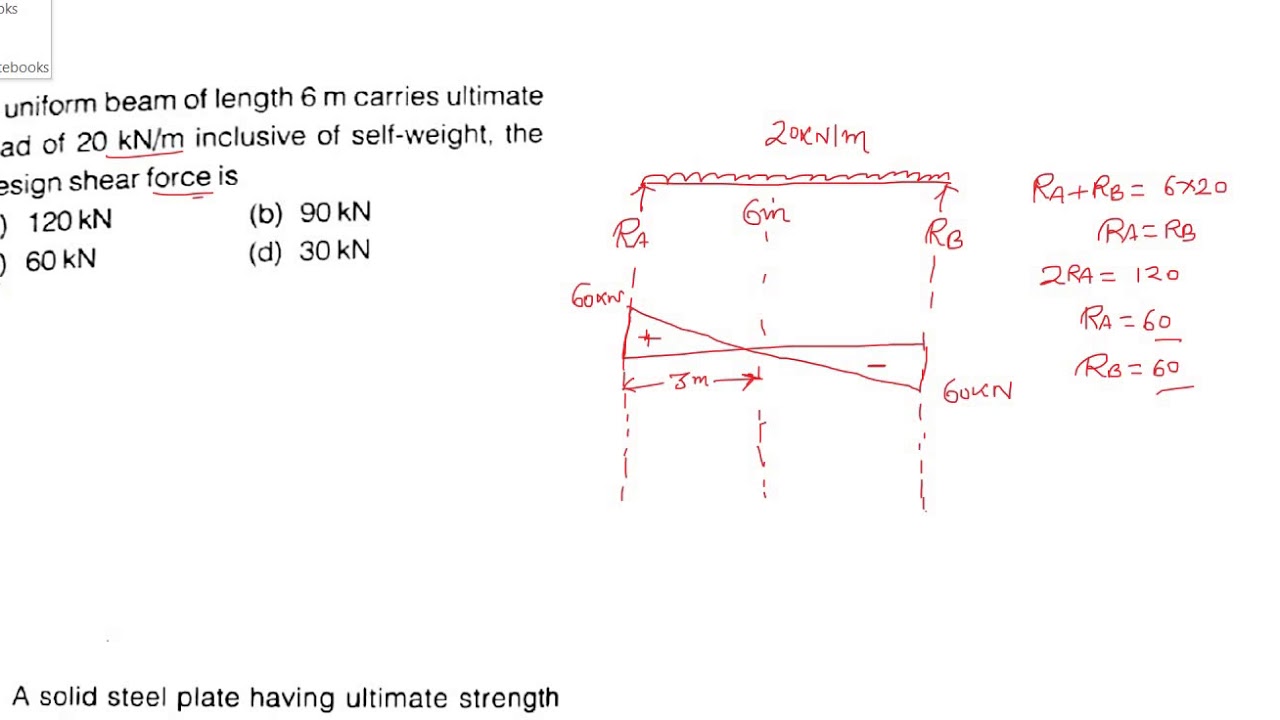 oks
tebooks
uniform beam of length 6 m carries ultimate
ad of 20 kN/m inclusive of self-weight, the
esign shear force is
) 120 kN (b) 90 kN
) 60 kN (d) 30 kN
20KN/m
6m
RA RB
60KN
+
-
3m
60KN
RA+RB = 6×20
RA = RB
2RA = 120
RA = 60
RB = 60
A solid steel plate having ultimate strength